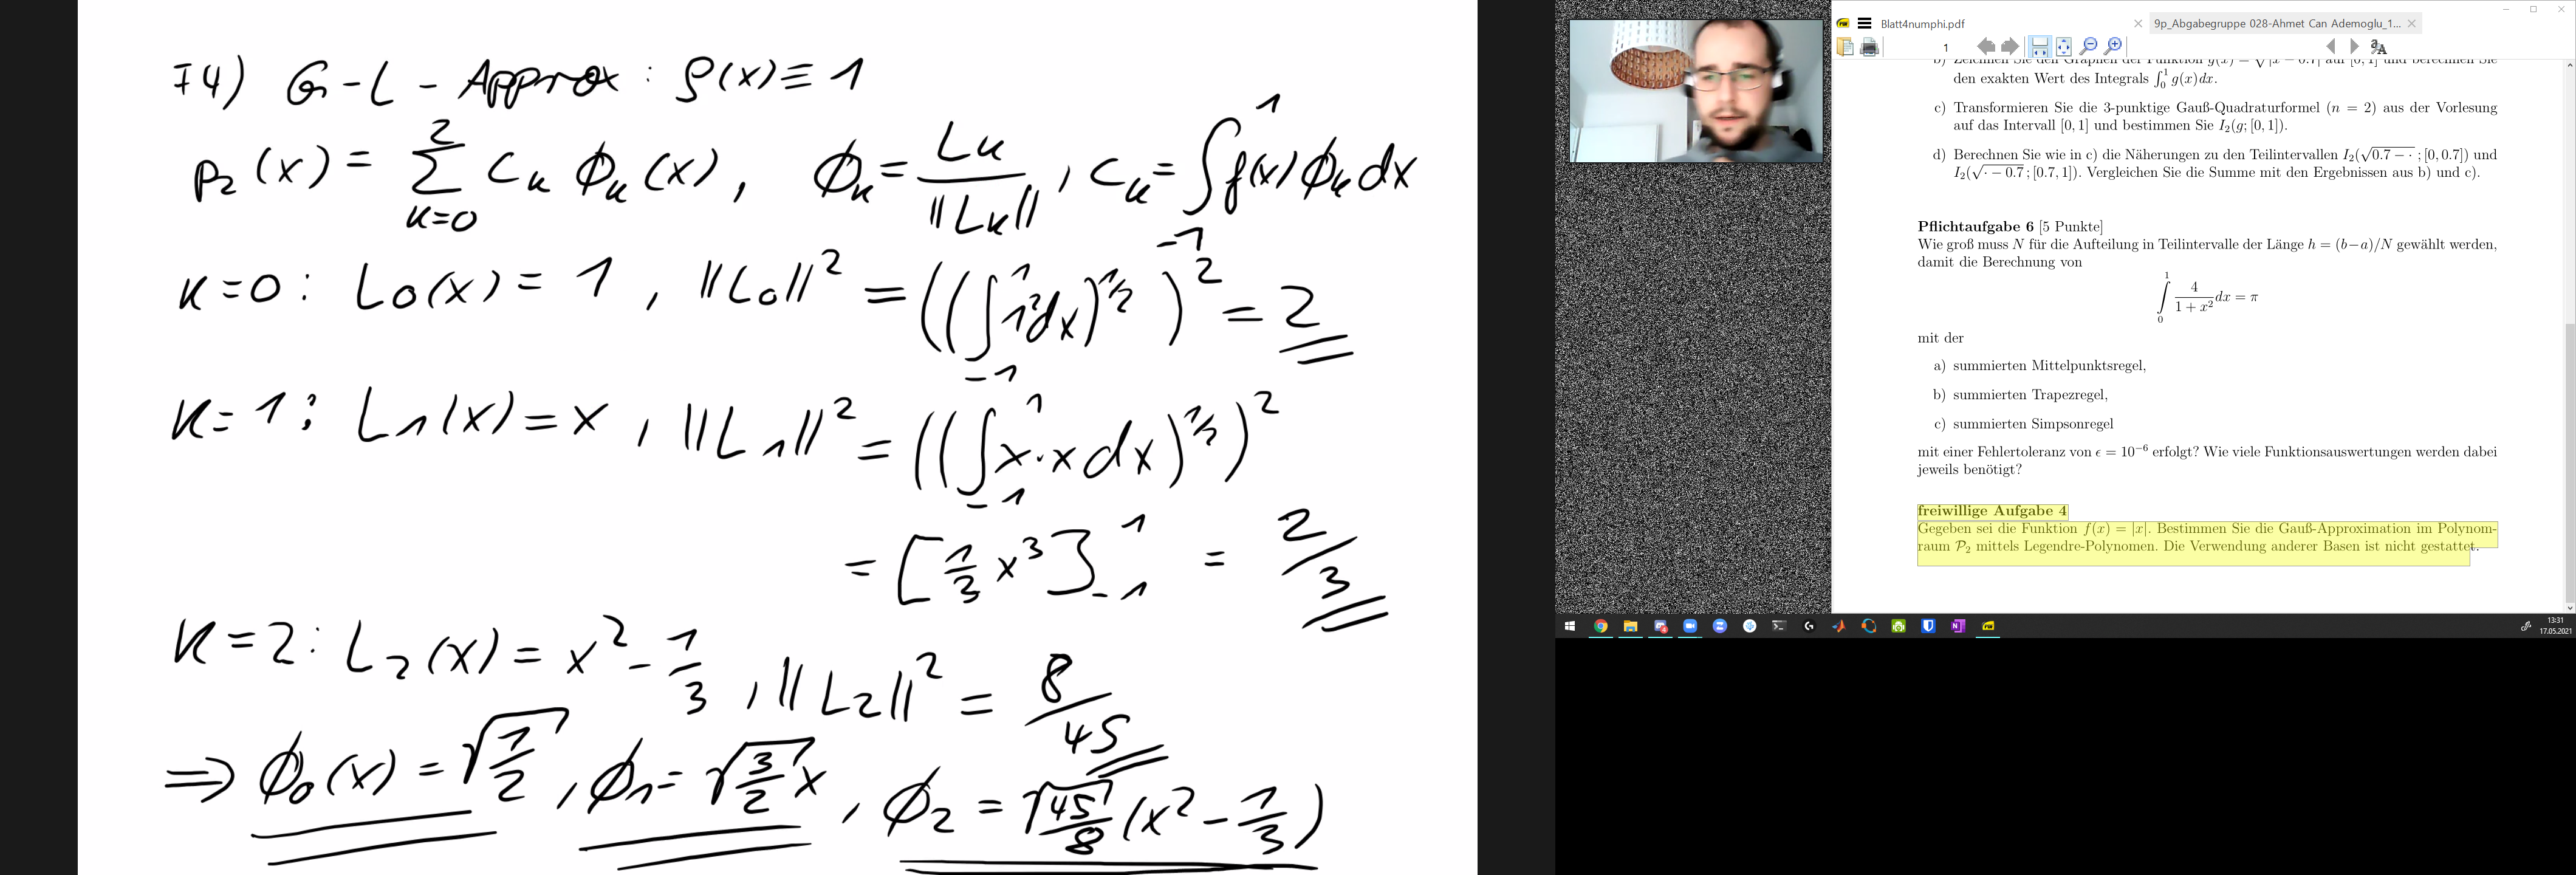 F4) G-L-Approx: ρ(x) ≡ 1
p₂(x) = ∑_{k=0}^{2} cₖ ϕₖ(x), ϕₖ = Lₖ/‖Lₖ‖, cₖ = ∫_{-1}^{1} f(x) ϕₖ dx
k=0: L₀(x) = 1, ‖L₀‖² = ((∫_{-1}^{1} 1² dx)^{1/2})² = 2
k=1: L₁(x) = x, ‖L₁‖² = ((∫_{-1}^{1} x·x dx)^{1/2})²
= [1/3 x³]_{-1}^{1} = 2/3
k=2: L₂(x) = x² - 1/3, ‖L₂‖² = 8/45
⇒ ϕ₀(x) = √(1/2), ϕ₁ = √(3/2) x, ϕ₂ = √(45/8) (x² - 1/3)
Blatt4numphi.pdf
9p_Abgabegruppe 028-Ahmet Can Ademoglu_1...
1
b) Zeichnen Sie den Graphen der Funktion g(x) = √|x − 0.7| auf [0, 1] und berechnen Sie
den exakten Wert des Integrals ∫₀¹ g(x)dx.
c) Transformieren Sie die 3-punktige Gauß-Quadraturformel (n = 2) aus der Vorlesung
auf das Intervall [0, 1] und bestimmen Sie I₂(g; [0, 1]).
d) Berechnen Sie wie in c) die Näherungen zu den Teilintervallen I₂(√(0.7 − ·) ; [0, 0.7]) und
I₂(√(· − 0.7) ; [0.7, 1]). Vergleichen Sie die Summe mit den Ergebnissen aus b) und c).
Pflichtaufgabe 6 [5 Punkte]
Wie groß muss N für die Aufteilung in Teilintervalle der Länge h = (b−a)/N gewählt werden,
damit die Berechnung von
∫₀¹ 4/(1 + x²) dx = π
mit der
a) summierten Mittelpunktsregel,
b) summierten Trapezregel,
c) summierten Simpsonregel
mit einer Fehlertoleranz von ϵ = 10⁻⁶ erfolgt? Wie viele Funktionsauswertungen werden dabei
jeweils benötigt?
freiwillige Aufgabe 4
Gegeben sei die Funktion f(x) = |x|. Bestimmen Sie die Gauß-Approximation im Polynom-
raum 𝒫₂ mittels Legendre-Polynomen. Die Verwendung anderer Basen ist nicht gestattet.
13:31
17.05.2021